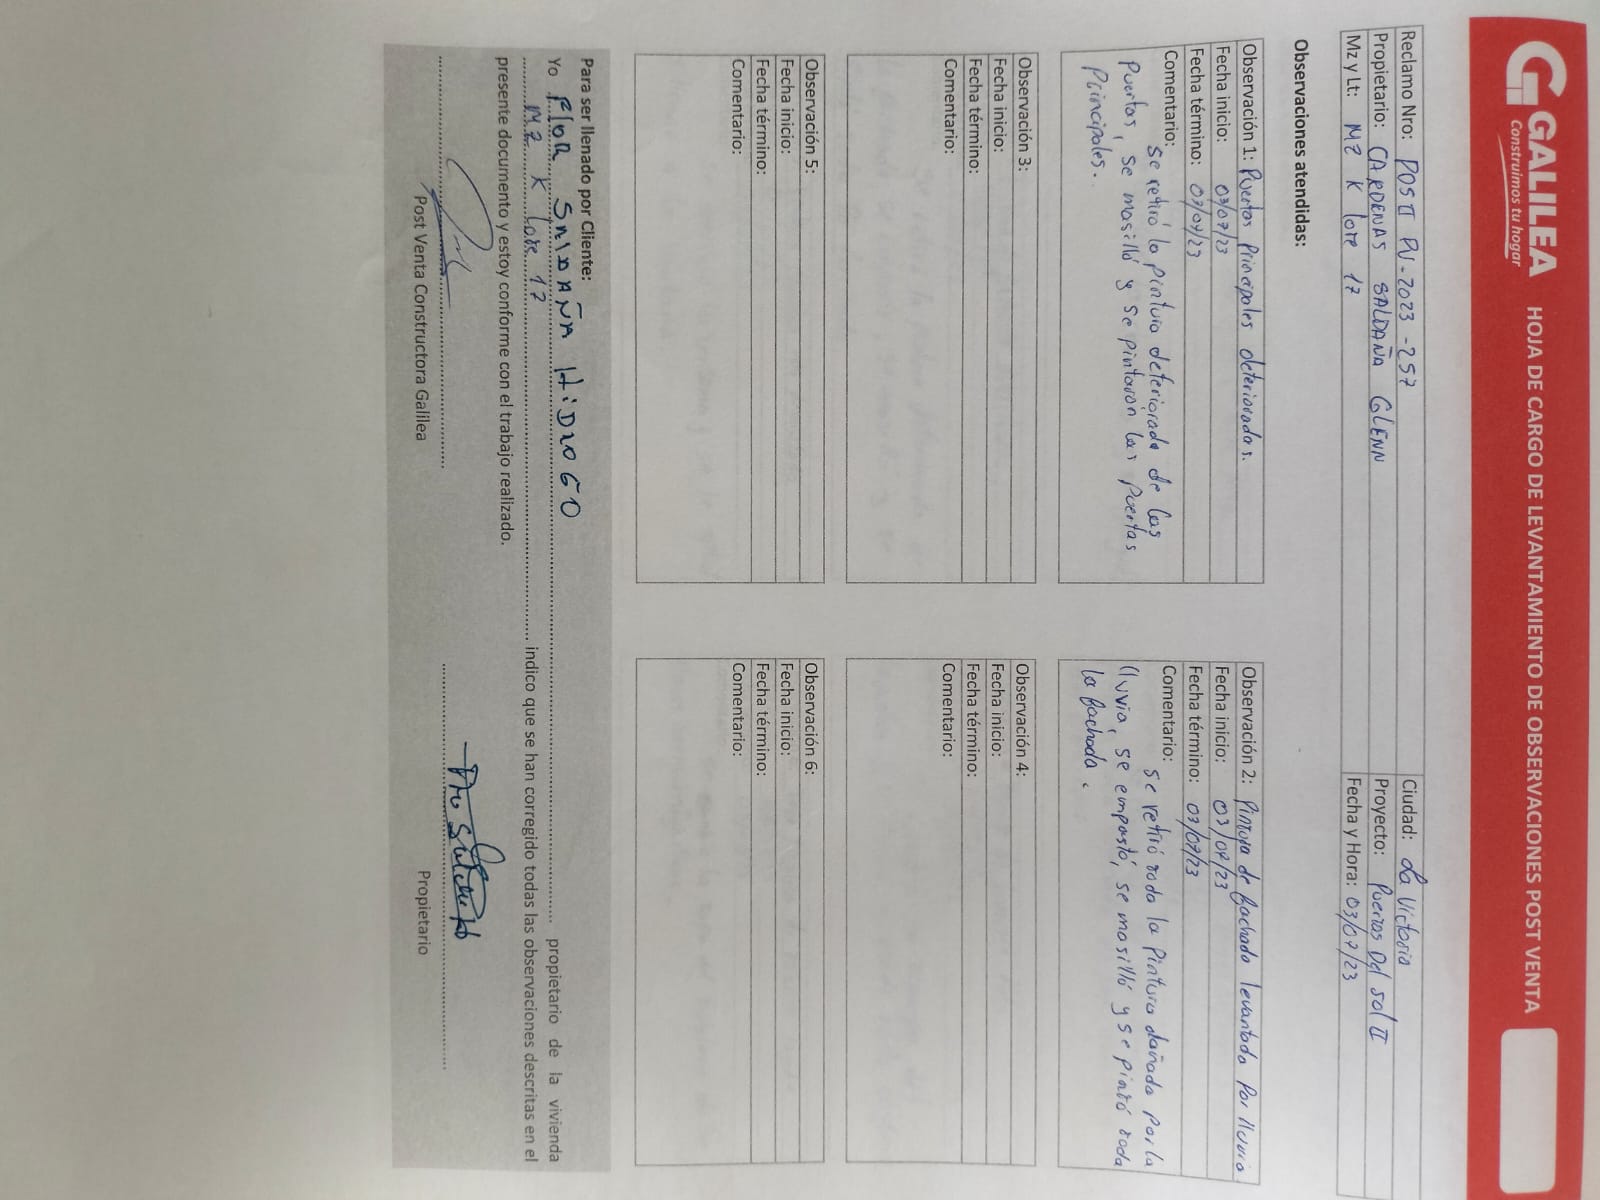 GALILEA
Construimos tu hogar
HOJA DE CARGO DE LEVANTAMIENTO DE OBSERVACIONES POST VENTA
Reclamo Nro: POS II PV-2023-257
Ciudad: La Victoria
Propietario: CARDENAS SALDAÑA GLENN
Proyecto: Puertas Del Sol II
Mz y Lt: MZ K lote 17
Fecha y Hora: 03/07/23
Observaciones atendidas:
Observación 1: Puertas principales deterioradas.
Fecha inicio: 03/07/23
Fecha término: 07/07/23
Comentario:
Se retiró la pintura deteriorada de las
puertas, se masilló y se pintaron las puertas
principales.
Observación 2: Pintura de fachada levantada por lluvia
Fecha inicio: 03/07/23
Fecha término: 07/07/23
Comentario:
Se retiró toda la pintura dañada por la
lluvia, se empastó, se masilló y se pintó toda
la fachada.
Observación 3:
Fecha inicio:
Fecha término:
Comentario:
Observación 4:
Fecha inicio:
Fecha término:
Comentario:
Observación 5:
Fecha inicio:
Fecha término:
Comentario:
Observación 6:
Fecha inicio:
Fecha término:
Comentario:
Para ser llenado por Cliente:
Yo FloR SAlDAÑA HiDROGO propietario de la vivienda
MZ K lote 17 indico que se han corregido todas las observaciones descritas en el
presente documento y estoy conforme con el trabajo realizado.
Post Venta Constructora Galilea
Propietario